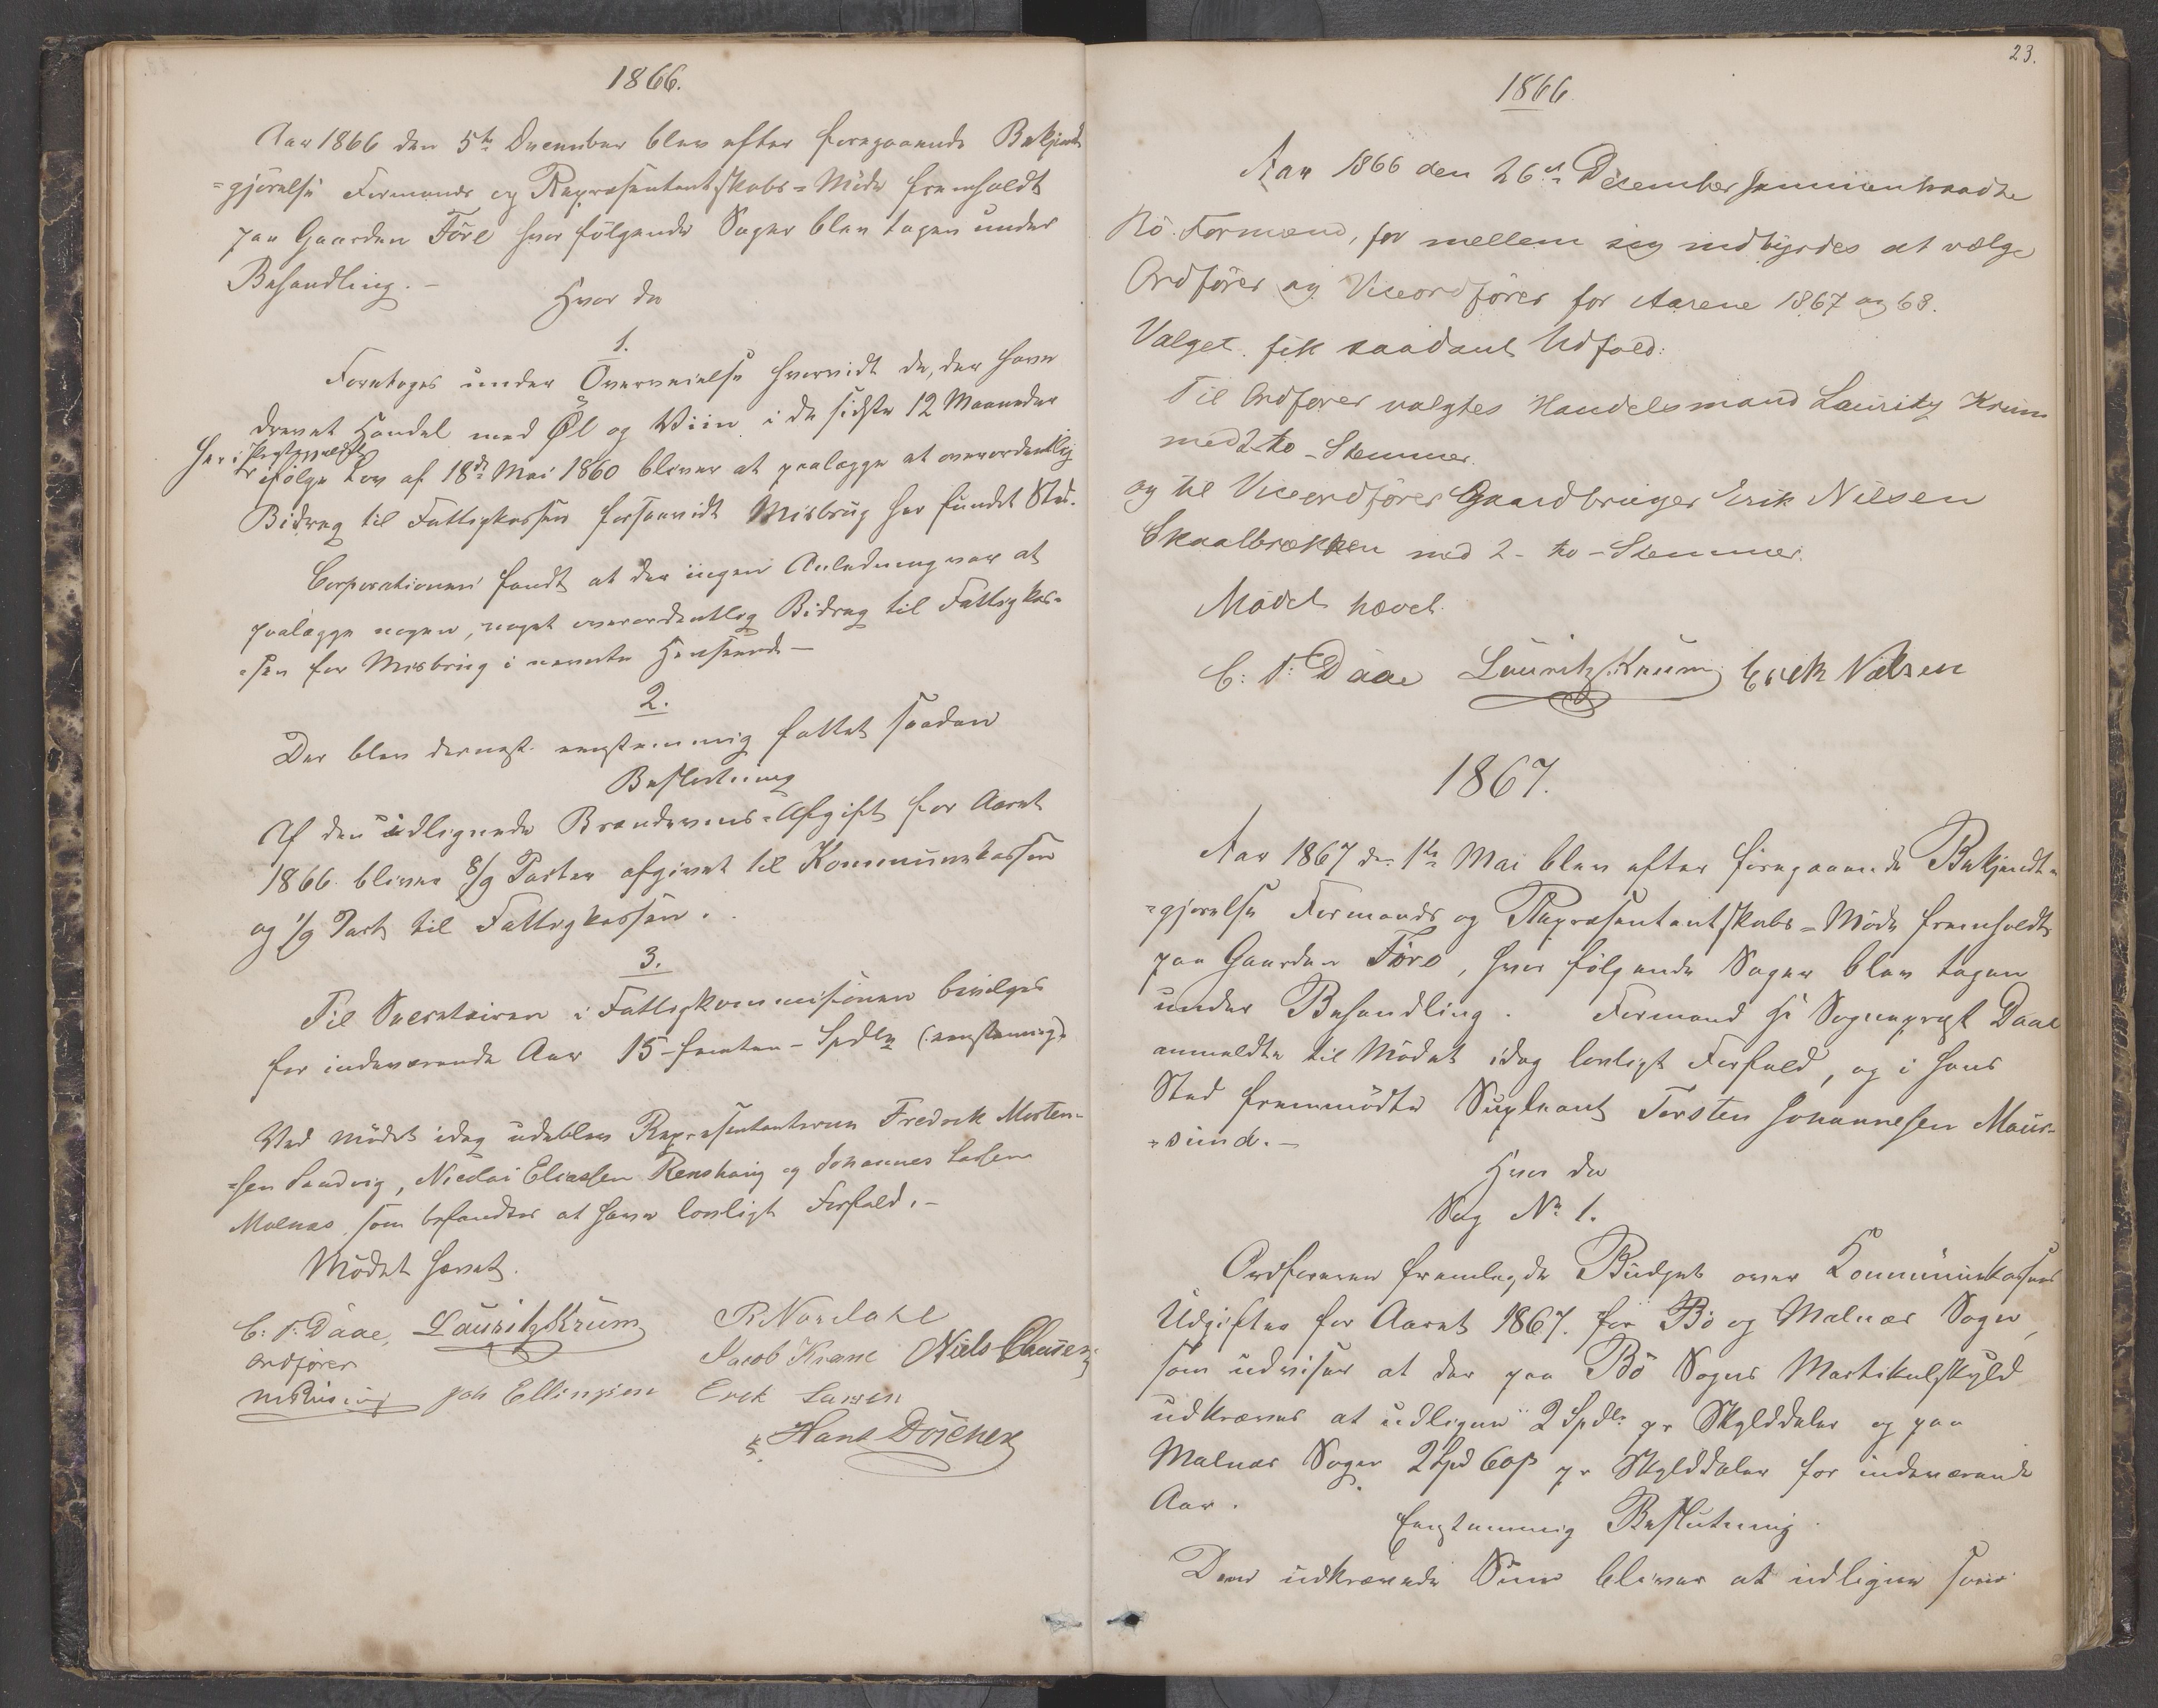 1866.
Aar 1866 den 5te December blev efter foregaaende Bekjendt
=gjørelse Formands og Repræsentantskabs=Møde fremholdt
paa Gaarden Före hvor følgende Sager blev tagen under
Behandling. –
Hvor da
1.
Foretoges under Overveielse hvorvidt de, der have
drevet Handel med Øl og Viin i de sidste 12 Maaneder
her i Prestegjeldet
ifølge Lov af 18de Mai 1860 bliver at paalægge et overordentlig
Bidrag til Fattigkassen forsaavidt Misbrug har fundet Sted.
Corporationen fandt at der ingen Anledning var at
paalægge nogen, noget overordentlig Bidrag til Fattigkas=
=sen for Misbrug i nævnte Henseende –
2.
Der blev dernæst eenstemmig fattet saadan
Beslutning
Af den udlignede Brændevins=Afgift for Aaret
1866 bliver 8/9 Parter afgivet til Kommunekassen
og 1/9 Part til Fattigkassen.
3.
Til Secretairen i Fattigkommisionen bevilges
for indeværende Aar 15-femten-Spdlr (:eenstemmig:)
Ved mødet idag udeblev Repræsentanterne Fredrik Morten=
=sen Sandvig, Nicolai Eliassen Renshaug og Johannes Larsen
Malnes, som befandtes at have lovligt Forfald. –
Mødet hævet.
C: T: Daae, Lauritz Krum R Nordahl
Ordfører Jacob Kræmer Niels Clausen
Joh Ellingsen Erek Larsen
Hans Döscher
23.
1866
Aar 1866 den 26de Desember sammentraadte
Bö Formænd, for mellem sig indbyrdes at vælge
Ordfører og Viceordfører for Aarene 1867 og 68.
Valget fik saadant Udfald:
Til Ordfører valgtes Handelsmand Lauritz Krum
med 2-to-Stemmer.
og til Viceordfører Gaardbruger Erik Nilsen
Skaalbrækken med 2-to-Stemmer.
Mödet hævet.
C: T: Daae Lauritz Krum Erek Nilsen
1867.
Aar 1867 den 1te Mai blev efter foregaaende Bekjendt=
=gjørelse Formands og Repræsentantskabs=Møde fremholdt
paa Gaarden Före, hvor følgende Sager blev tagen
under Behandling. Formand Hr Sognepræst Daae
anmeldte til Mödet idag lovligt Forfald, og i hans
Sted fremmødte Supleant Torsten Johannesen Maur=
=sund. –
Hvor da
Sag No 1.
Ordføreren fremlagde Budget over Kommunekassens
Udgifter for Aaret 1867. for Bö og Malnes Sogn,
som udviser at der paa Bö Sogns Martikulskyld
udkræves at udligne 2 Spdlr pr Skylddaler og paa
Malnes Sogn 2 Spd 60 ß pr Skylddaler for indeværende
Aar.
Eenstemmig Beslutning.
Den udkrævede Sum bliver at udligne som